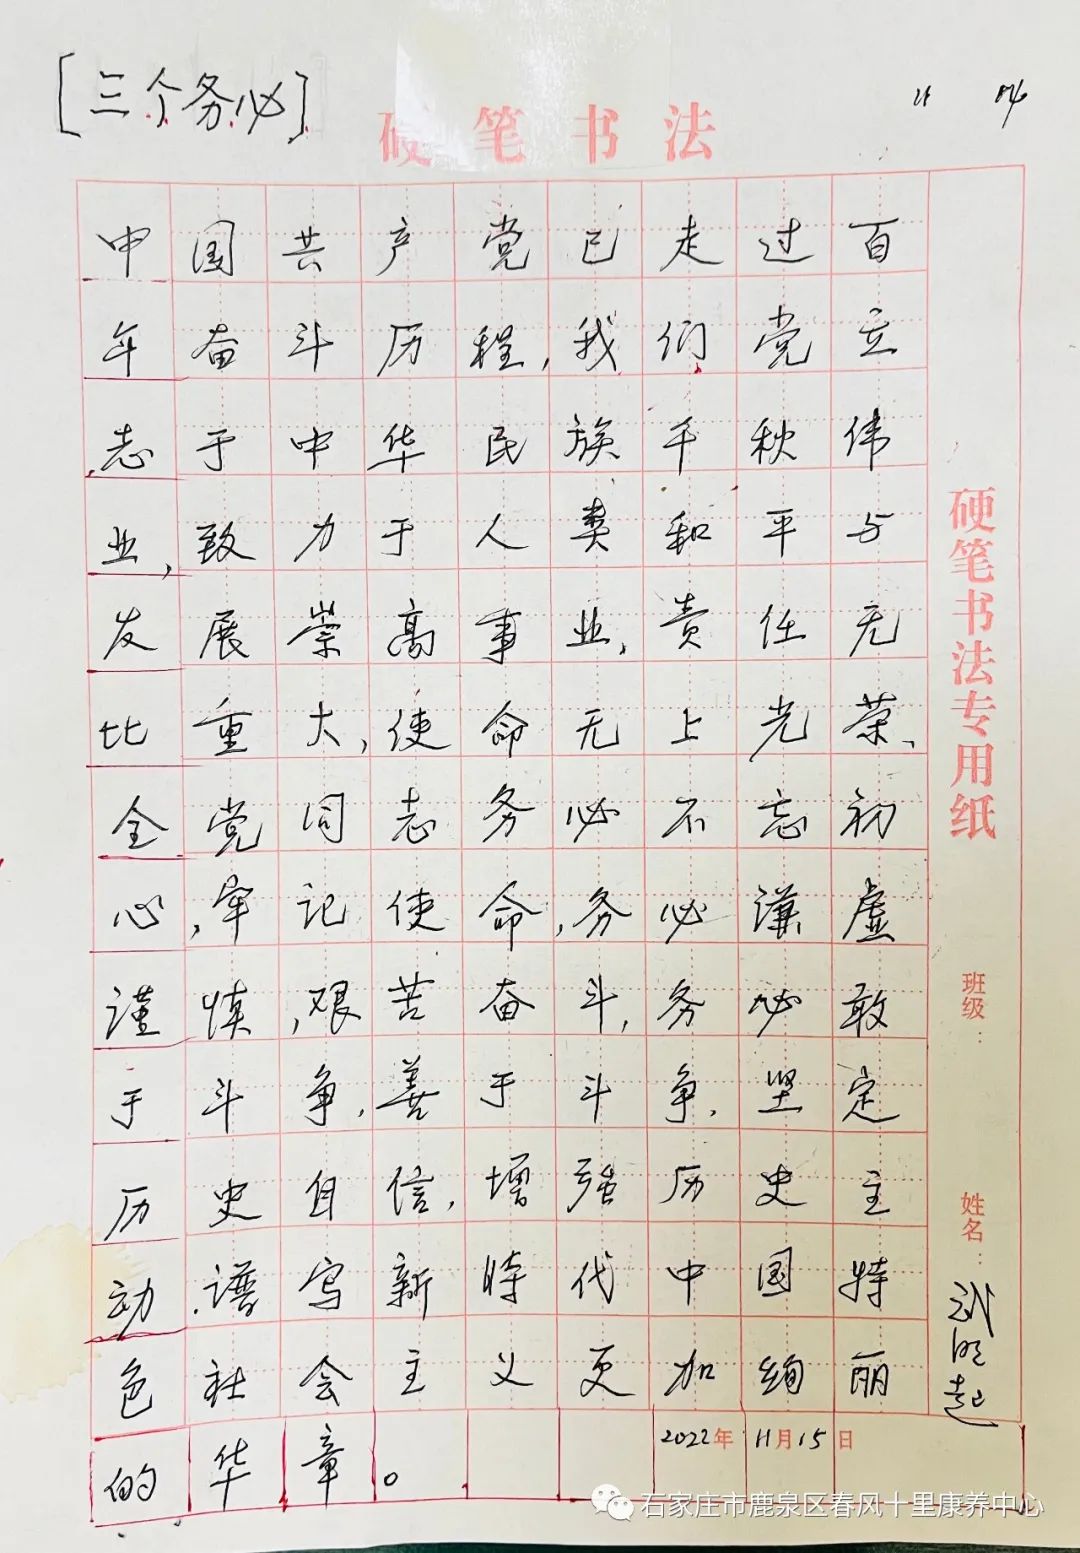 [三个务必]
硬笔书法
中国共产党已走过百
年奋斗历程,我们党立
志于中华民族千秋伟
业,致力于人类和平与
发展崇高事业,责任无
比重大,使命无上光荣、
全党同志务必不忘初
心,牢记使命,务必谦虚
谨慎,艰苦奋斗,务必敢
于斗争,善于斗争,坚定
历史自信,增强历史主
动,谱写新时代中国特
色社会主义更加绚丽
的华章。
2022年11月15日
硬笔书法专用纸
班级:
姓名:
石家庄市鹿泉区春风十里康养中心